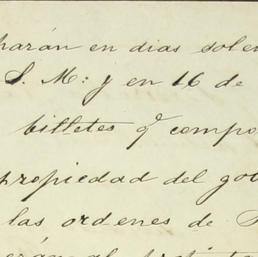 harán en dias solem
S. M: y en 16 de
billetes q̃ compo
propiedad del gob
las ordenes de
erán al